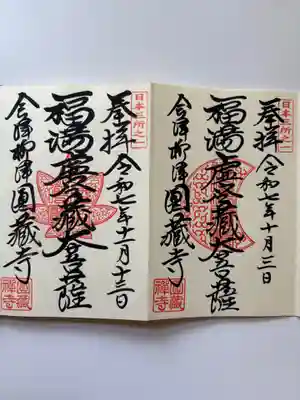 日本三所之一
奉拝 令和七年十月三日
福満虚空藏大菩薩
会津柳津圓藏寺
圓藏禅寺
日本三所之一
奉拝 令和七年十一月十三日
福満虚空藏大菩薩
会津柳津圓藏寺
圓藏禅寺